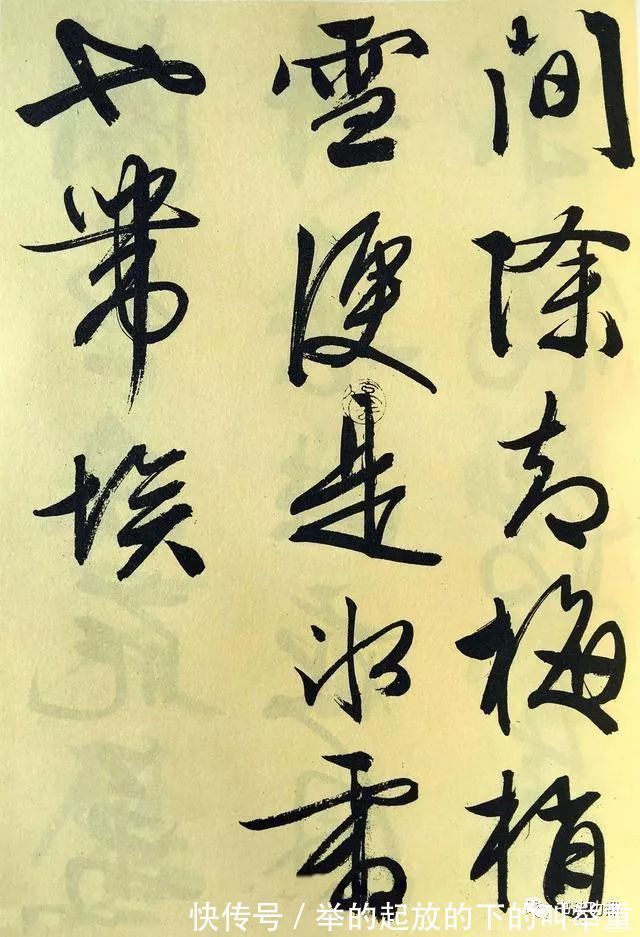 間除却梅梢
雪便是冰霜
也帶埃
快传号 / 举的起放的下的叫举重